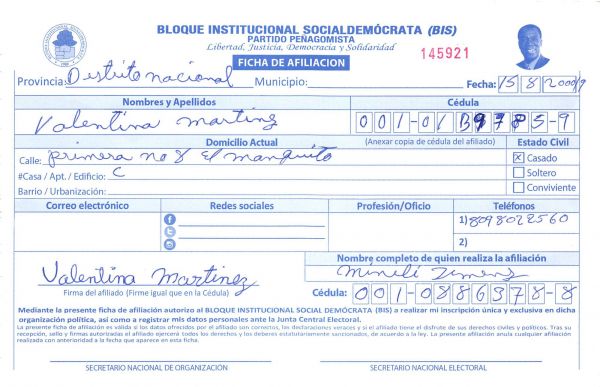 BLOQUE INSTITUCIONAL SOCIALDEMÓCRATA (BIS)
PARTIDO PEÑAGOMISTA
Libertad, Justicia, Democracia y Solidaridad
145921
FICHA DE AFILIACION
Provincia: Distrito nacional Municipio: Fecha: 15/8/2000/9
Nombres y Apellidos Cédula
Valentina Martinz 001-01397 5-9
Domicilio Actual (Anexar copia de cédula del afiliado) Estado Civil
Calle: primera no 8 el manguito ☒ Casado
#Casa / Apt. / Edificio: C ☐ Soltero
Barrio / Urbanización: ☐ Conviviente
Correo electrónico Redes sociales Profesión/Oficio Teléfonos
1) 8098022560
2)
Nombre completo de quien realiza la afiliación
Valentina Martinez Jimens
Firma del afiliado (Firme igual que en la Cédula) Cédula: 001-0886378-8
Mediante la presente ficha de afiliación autorizo al BLOQUE INSTITUCIONAL SOCIAL DEMÓCRATA (BIS) a realizar mi inscripción única y exclusiva en dicha
organización política, así como a registrar mis datos personales ante la Junta Central Electoral.
La presente ficha de afiliación es válida si los datos ofrecidos por el afiliado son correctos, las declaraciones veraces y si el afiliado tiene el disfrute de sus derechos civiles y políticos. Tras su
recepción, sello y firmas autorizadas el afiliado ejercerá todos los derechos y los deberes estatutariamente sancionados, de acuerdo a la ley. La presente afiliación anula cualquier afiliación
realizada con anterioridad a la fecha que aparece en esta ficha.
SECRETARIO NACIONAL DE ORGANIZACIÓN SECRETARIO NACIONAL ELECTORAL